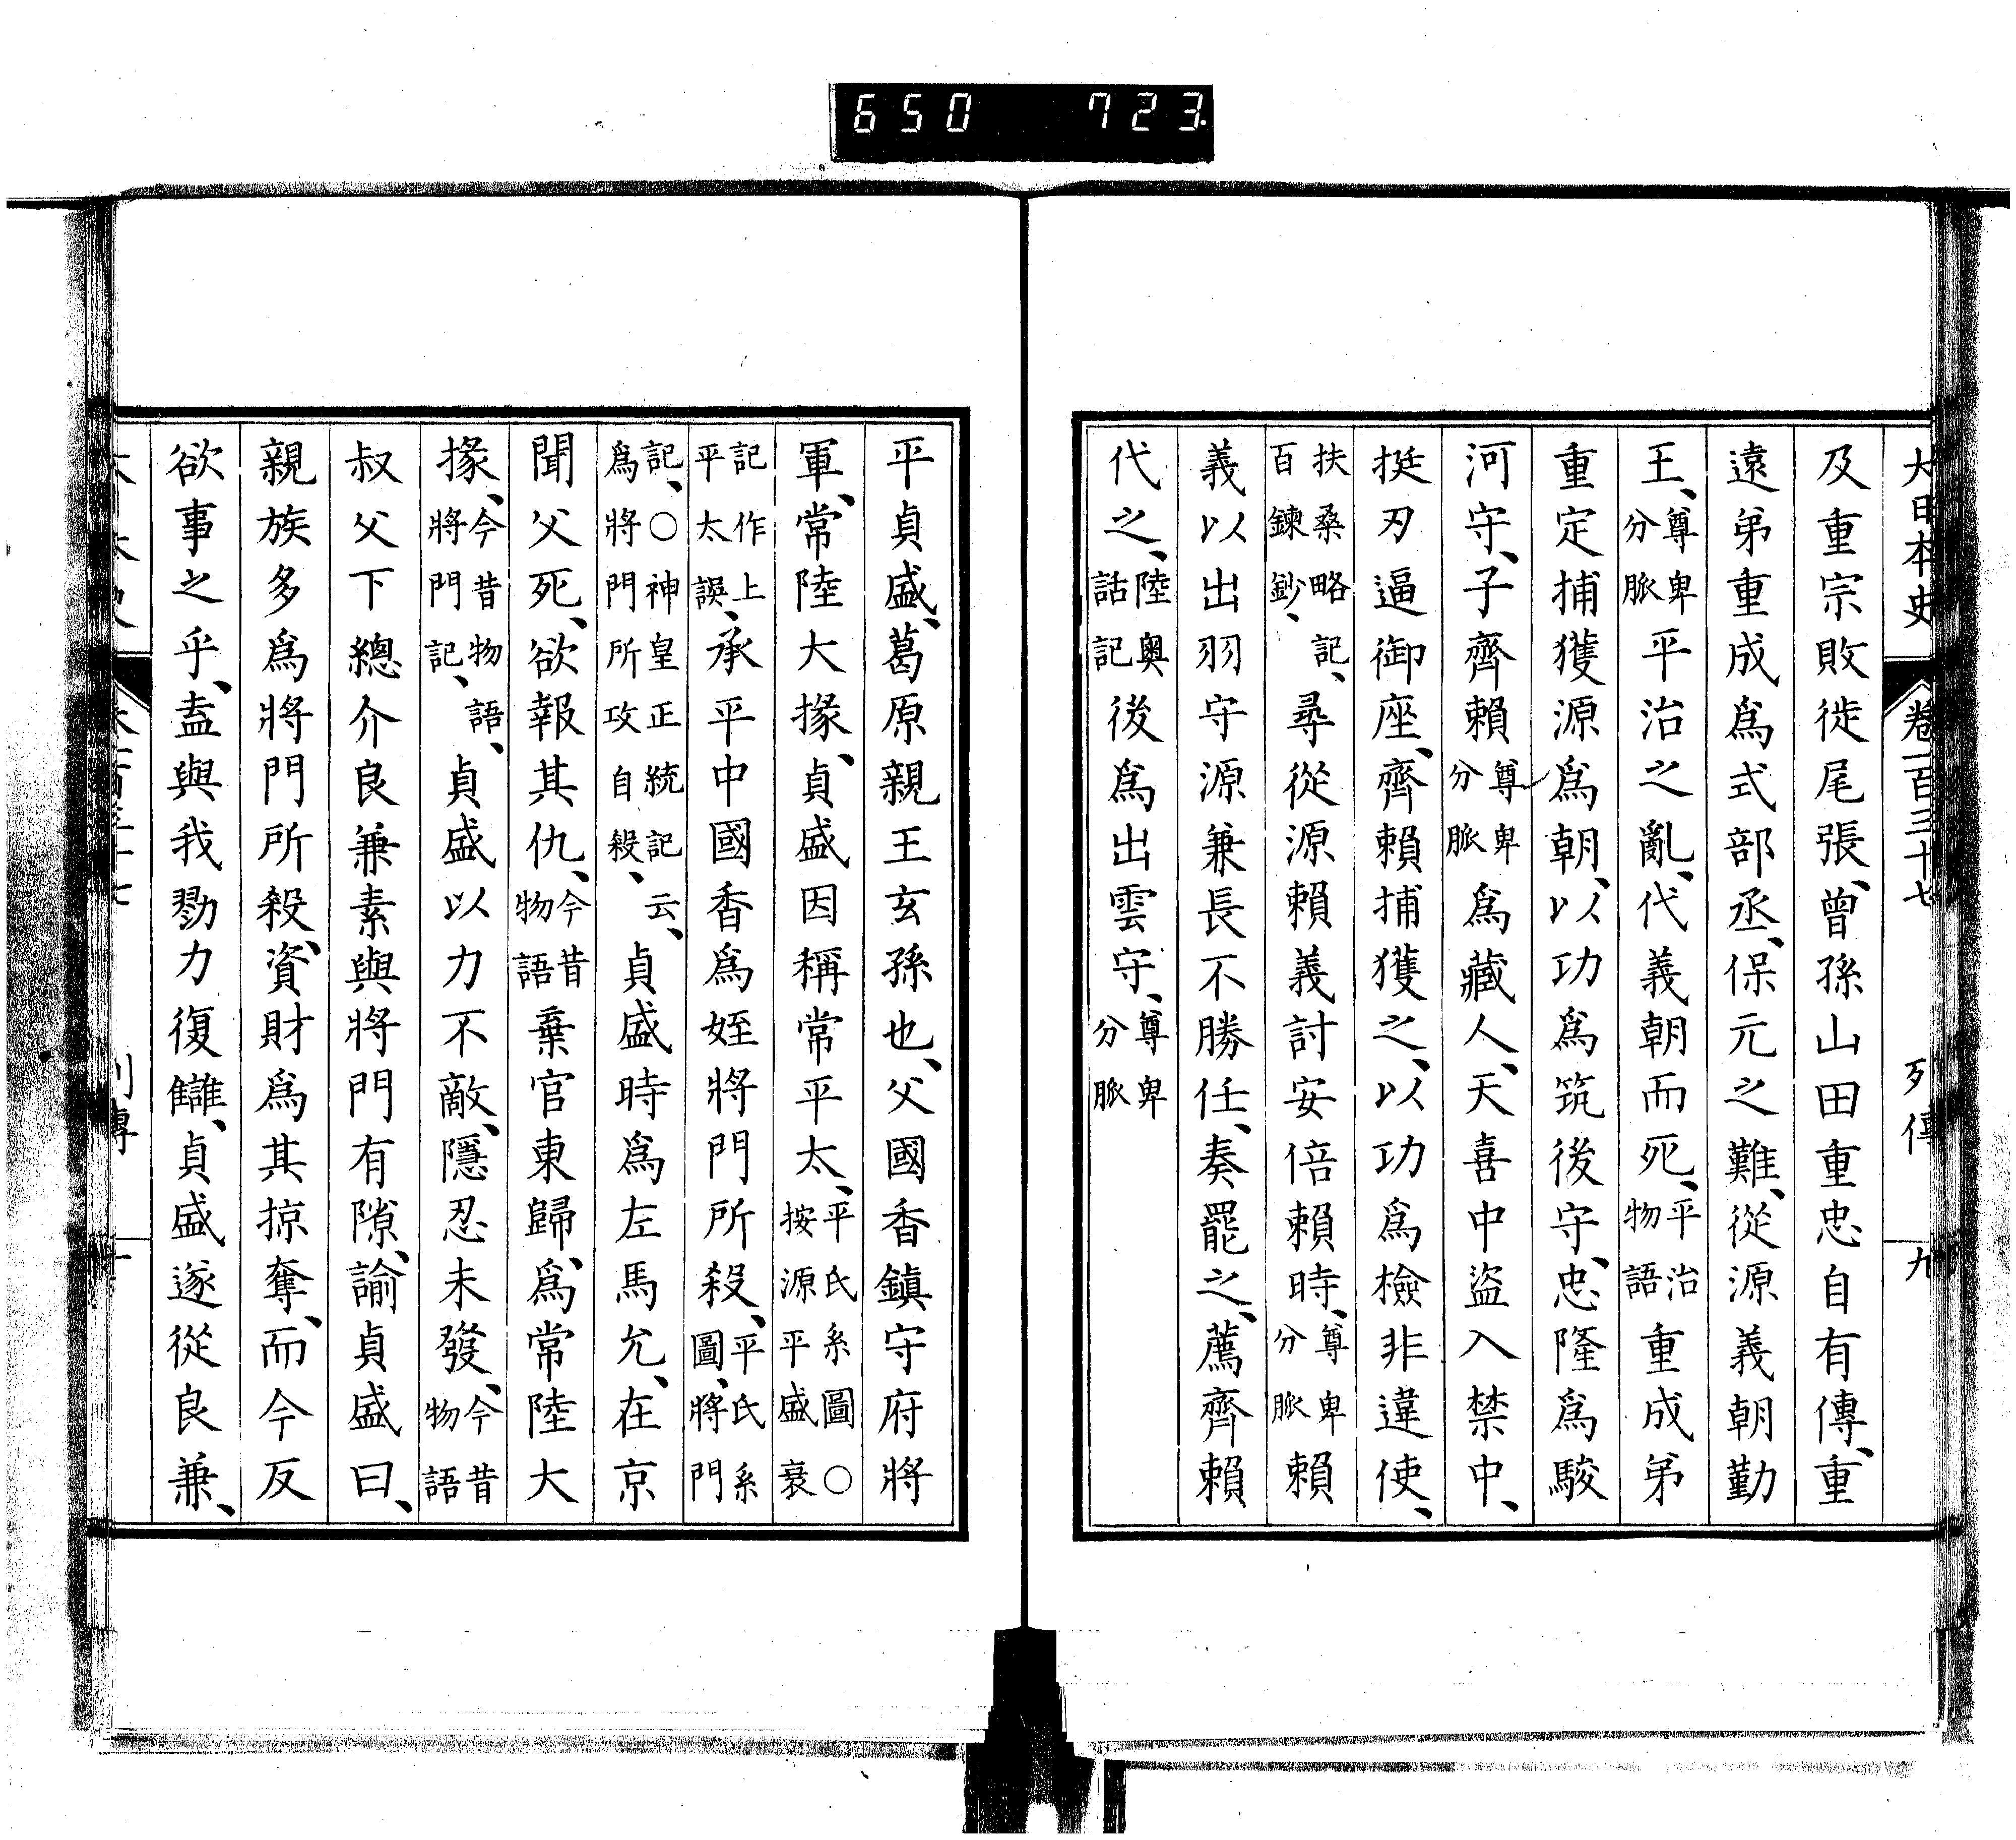 650 723
大日本史 卷一百三十七 列傳 九
及重宗敗徙尾張、曾孫山田重忠自有傳、重
遠弟重成爲式部丞、保元之難、從源義朝勤
王、尊卑分脈平治之亂、代義朝而死、平治物語重成弟
重定捕獲源爲朝、以功爲筑後守、忠隆爲駿
河守、子齊賴尊卑分脈爲藏人、天喜中盜入禁中、
挺刃逼御座、齊賴捕獲之、以功爲檢非違使、
扶桑略記、百鍊鈔、尋從源賴義討安倍賴時、尊卑分脈賴
義以出羽守源兼長不勝任、奏罷之、薦齊賴
代之、陸奧話記後爲出雲守、尊卑分脈
平貞盛、葛原親王玄孫也、父國香鎮守府將
軍、常陸大掾、貞盛因稱常平太、平氏系圖○按源平盛衰
記作上平太誤、承平中國香爲姪將門所殺、平氏系圖、將門
記、○神皇正統記云、爲將門所攻自殺、貞盛時爲左馬允、在京
聞父死、欲報其仇、今昔物語棄官東歸、爲常陸大
掾、今昔物語、將門記、貞盛以力不敵、隱忍未發、今昔物語
叔父下總介良兼素與將門有隙、諭貞盛曰、
親族多爲將門所殺、資財爲其掠奪、而今反
欲事之乎、盍與我勠力復讎、貞盛遂從良兼、